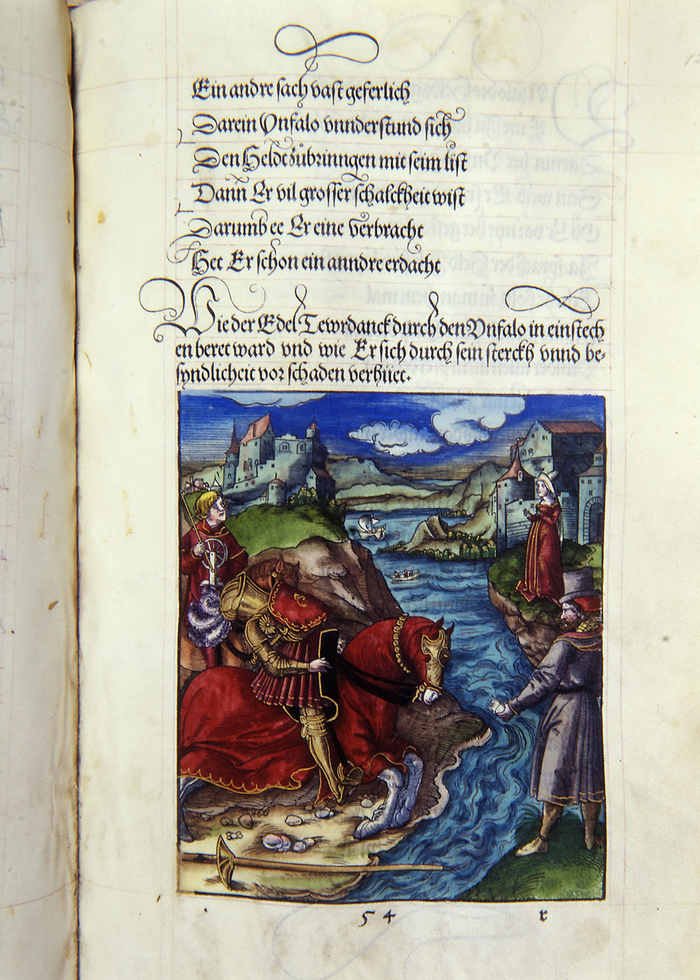 Ein andre sach vast geferlich
Darein Vnfalo vnnderstund sich
Den Heldt zůbrinngen mit seim list
Dann Er vil grosser schalckheit wist
Darumb ee Er eine verbracht
Het Er schon ein anndre erdacht
Wie der Edel Tewrdanck durch den Vnfalo in ein stech
en beret ward vnd wie Er sich durch sein sterckh vnnd be-
syndlicheit vor schaden verhüet.
54 r